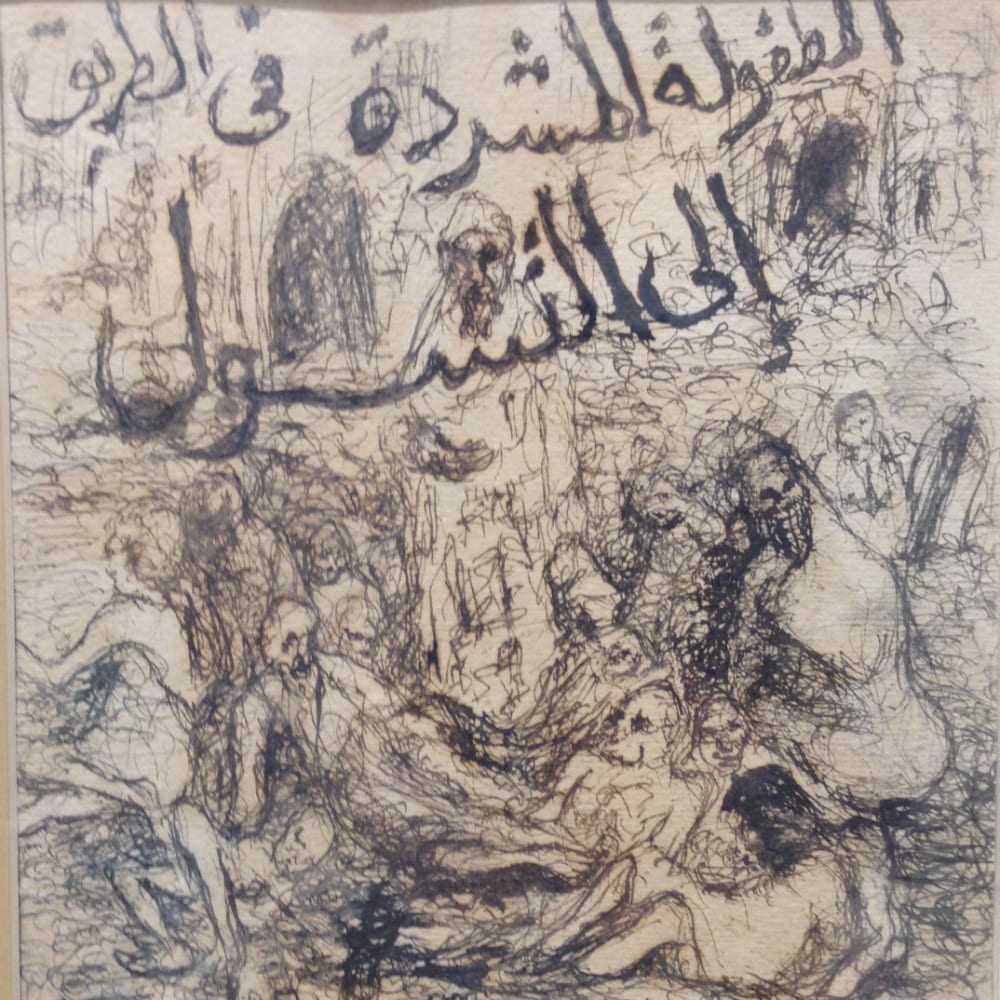 الطفولة المشردة فى الطريق
إلى التسول